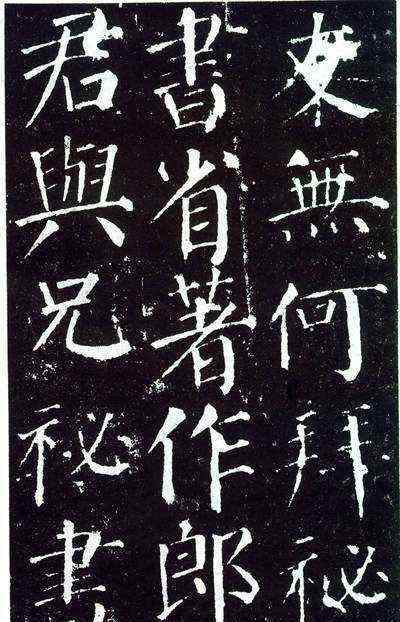 友無何拜祕
書省著作郎
君與兄祕書